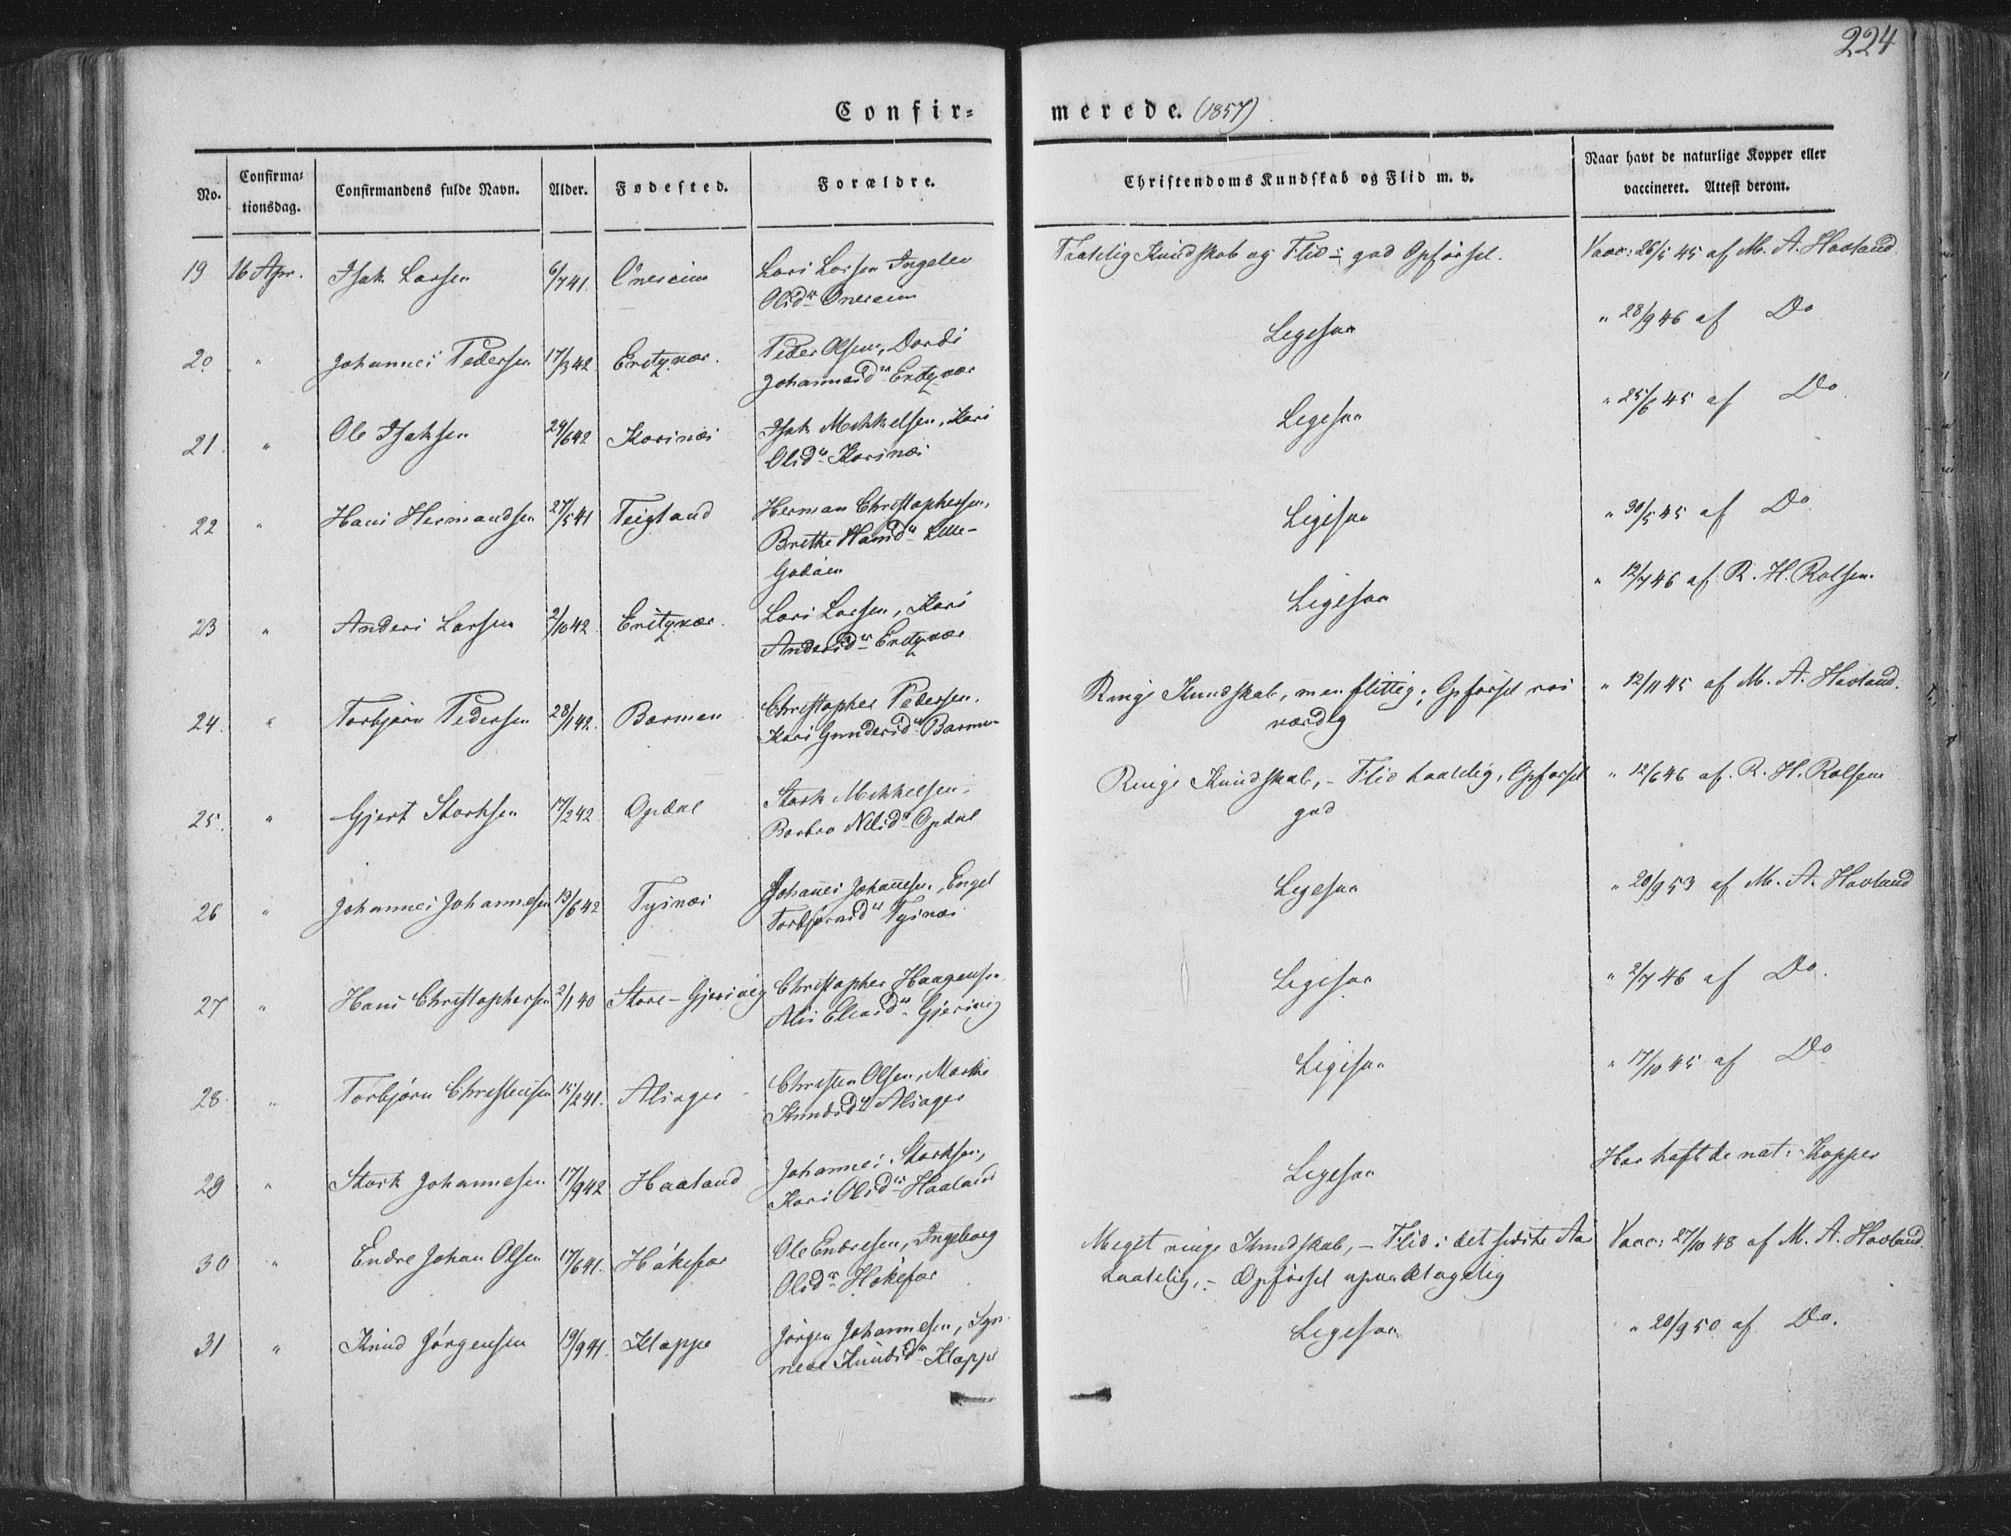 224
Confir= merede. (1857)
No. Confirmationsdag. Confirmandens fulde Navn. Alder. Fødested. Forældre. Christendoms Kundskab og Flid m. v. Naar havt de naturlige Kopper eller vaccineret. Attest derom.
19 16 Apr. Isak Larsen 6/7 41. Onereim Lars Larsen Ingelev Taalelig Kundskab og Flid – god Opførsel. Vacc: 26/5 45 af M. A. Havland
Olsd. Onereim
20 " Johannes Pedersen 17/3 42 Peder Olsen, Dordi Ligesaa " 28/9 46 af Do
Johannesd.
21. " Ole Isaksen 24/6 42 Korsnæs Isak Mikkelsen, Kari Ligesaa " 25/6 45 af Do
Olsd. Korsnæs
22 " Hans Hermandsen 27/5 41 Teigland Herman Christophersen, Ligesaa " 30/5 45 af Do
Brithe Hansd. Lille-
Godøen
23 " Anders Larsen 2/10 42 Lars Larsen, Kari Ligesaa " 12/7 46 af R. H. Rolfsen.
Andersd.
24. " Torbjørn Pedersen 28/1 42. Barmen Christopher Pedersen, Ringe Kundskab, men flittig; Opførsel ros " 12/11 45 af M. A. Havland.
Kari Gundersd. Barmen værdig
25. " Gjert Storksen 17/2 42 Opdal Stork Mikkelsen, Ringe Kundskab, – Flid taalelig, Opførsel " 12/6 46 af R. H. Rolfsen
Barbro Nilsd. Opdal god
26 " Johannes Johannesen 13/6 42 Tysnæs Johanes Johanesen, Engel Ligesaa " 20/9 53 af M. A. Havland
Torbjørnsd. Tysnæs
27 " Hans Christophersen 2/1 40 Store-Gjersvig Christopher Haagensen Ligesaa " 2/7 46 af Do.
Gjersvig
28. " Torbjørn Christensen 15/2 41. Alsager Christen Olsen, Marthe Ligesaa " 17/10 45 af Do
Knudsd. Alsager
29 " Stork Johannesen 17/9 42 Haaland Johannes Storksen, Ligesaa Har haft de nat: Kopper
Kari Olsd. Haaland
30 " Endre Johan Olsen 17/6 41. Høkefar Ole Endresen, Ingeborg Meget ringe Kundskab, – Flid i det sidste Aar Vacc: 27/10 48 af M. A. Havland.
Olsd. Høkefar taalelig, – Opførsel upaaklagelig
31 " Knud Jørgensen 19/9 41. Kloppe Jørgen Johannesen, Syn- Ligesaa " 20/9 50 af Do.
neve Knudsd. Kloppe